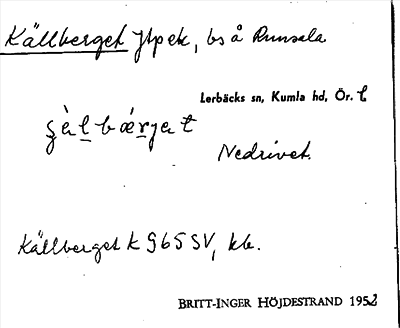 Källberget Jtpek, bs å Runsala
Lerbäcks sn, Kumla hd, Ör. l
ʂàl bǽrjat
Nedrivet.
Källberget K 965 SV, kb.
BRITT-INGER HÖJDESTRAND 1952